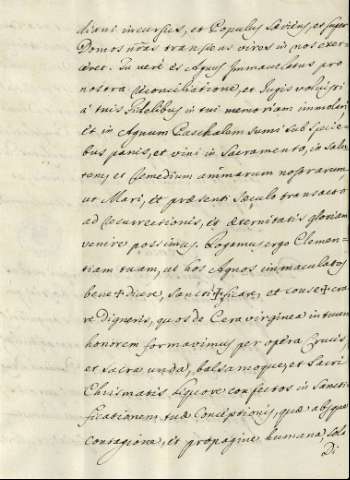 dianus incursus, et Populus sæviens, et super
Domos nras transiens viros in nos exer
ceret. Tu verè es Agnus Immaculatus pro
nostra Reconciliatione, et Jugis voluisti
à tuis Fidelibus in tui memoriam immolari,
et in Agnum Paschalem sumi sub specie-
bus panis, et vini in Sacramento, in salu-
tem, et Remedium animarum nostrarum,
ut Mari, et præsenti Sæculo transacto
ad Resurrectionis, et æternitatis gloriam
venire possimus. Rogamus ergo Clemen-
tiam tuam, ut hos Agnos immaculatos
bene✝dicere, sancti✝ficare, et conse✝cra
re digneris, quos de Cera virginea in tuum
honorem formavimus per opera Crucis,
et sacra unda, balsamoque, et Sacri
Chrismatis liquore confectos in Sancti
ficationem tuæ Conceptionis, quæ absque
contagione, et propagine humana, sola
Di